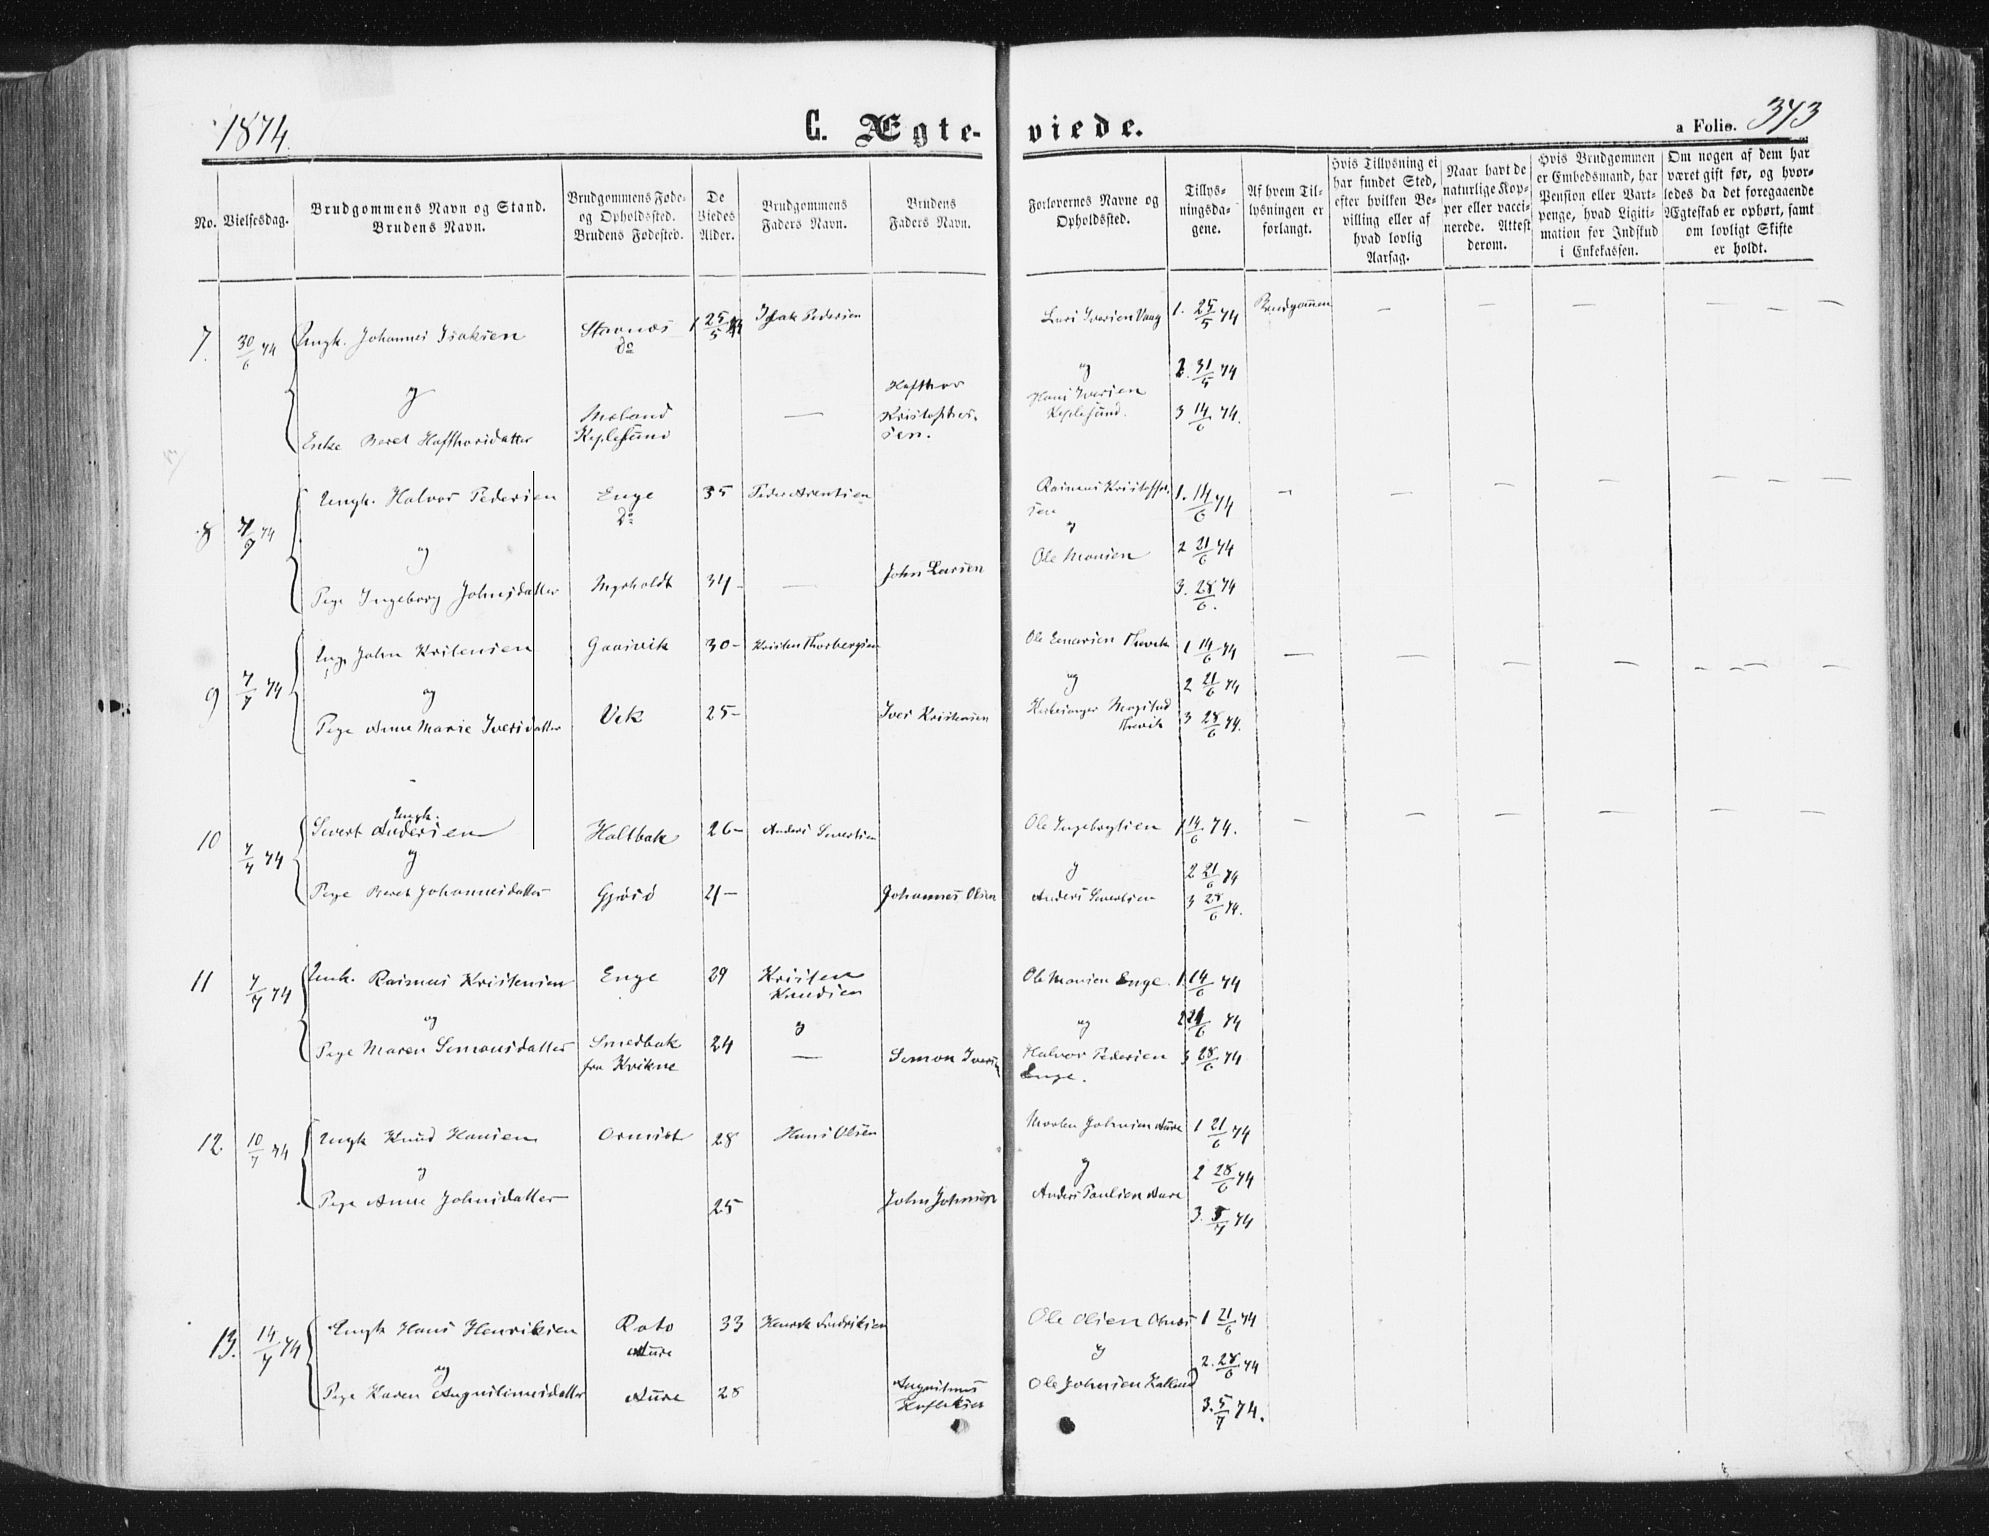 1874.
C. Ægte-
viede.
a Folio. 373
No.
Vielsesdag.
Brudgommens Navn og Stand.
Brudens Navn.
Brudgommens Føde-
og Opholdssted.
Brudens Fødested.
De
Viedes
Alder.
Brudgommens
Faders Navn.
Brudens
Faders Navn.
Forlovernes Navne og
Opholdssted.
Tillys-
ningsda-
gene.
Af hvem Til-
lysningen er
forlangt.
Hvis Tillysning ei
har fundet Sted,
efter hvilken Be-
villing eller af
hvad lovlig
Aarsag.
Naar havt de
naturlige Kop-
per eller vacci-
nerede. Attest
derom.
Hvis Brudgommen
er Embedsmand, har
Pension eller Vart-
penge, hvad Ligiti-
mation for Indskud
i Enkekassen.
Om nogen af dem har
været gift før, og hvor-
ledes da det foregaaende
Ægteskab er ophørt, samt
om lovligt Skifte
er holdt.
7. 30/6 74 Ungk. Johannes Isaksen
do
Isak Pedersen
Lars Iversen Vaag 1. 25/5 74 Brudgommen
og 2. 31/5 74
og
Enke Beret Hafthorsdatter
Hafthor
Kristophers-
sen.
Hans Iversen
3 14/6 74.
8 7/7 74 Ungk. Halvor Pedersen Enge 35 Peder Arentsen
do
og
Pige Ingeborg Johnsdatter Myrholdt 34 — John Larsen
Rasmus Kristoffer-
sen 1. 14/6 74
og
Ole Monsen 2 21/6 74
3. 28/6 74
9 7/7 74 Ung. John Kristensen 30 Kristen Thorbergsen
og
Pige Anne Marie Iversdatter Vik 25 Iver Kristensen
1 14/6 74
og 2 21/6 74
Kirkesanger 3 28/6 74.
10 7/7 74 Ungk.
Sivert Andersen 26 Anders Sivertsen
og
Pige Beret Johannesdatter 21 Johannes Olsen
Ole Ingebrigtsen 1 14/6 74.
og 2 21/6 74
Anders Sivertsen 3 28/6 74.
11 7/7 74 Ungk. Rasmus Kristensen Enge 29 Kristen
Knudsen
og
Pige Maren Simonsdatter Smedbak 24 — Simon Iversen
fra Kvikne
Ole Monsen Enge. 1. 14/6 74
og 2 21/6 74
Halvor Pedersen 3 28/6 74
Enge.
12. 10/7 74 Ungk Knud Hansen 28 Hans Olsen
og
Pige Anne Johnsdatter 25 John Johnsen
Morten Johnsen Aure 1 21/6 74
og 2 28/6 74
Anders Paulsen Aure
3. 5/7 74
13. 14/7 74 Ungk Hans Henriksen 33 Henrik Fredriksen
Aure
og
Pige Karen Augustinusdatter Aure 28 Augustinus
Ole Olsen 1 21/6 74
og 2. 28/6 74
Ole Johnsen
3. 5/7 74.